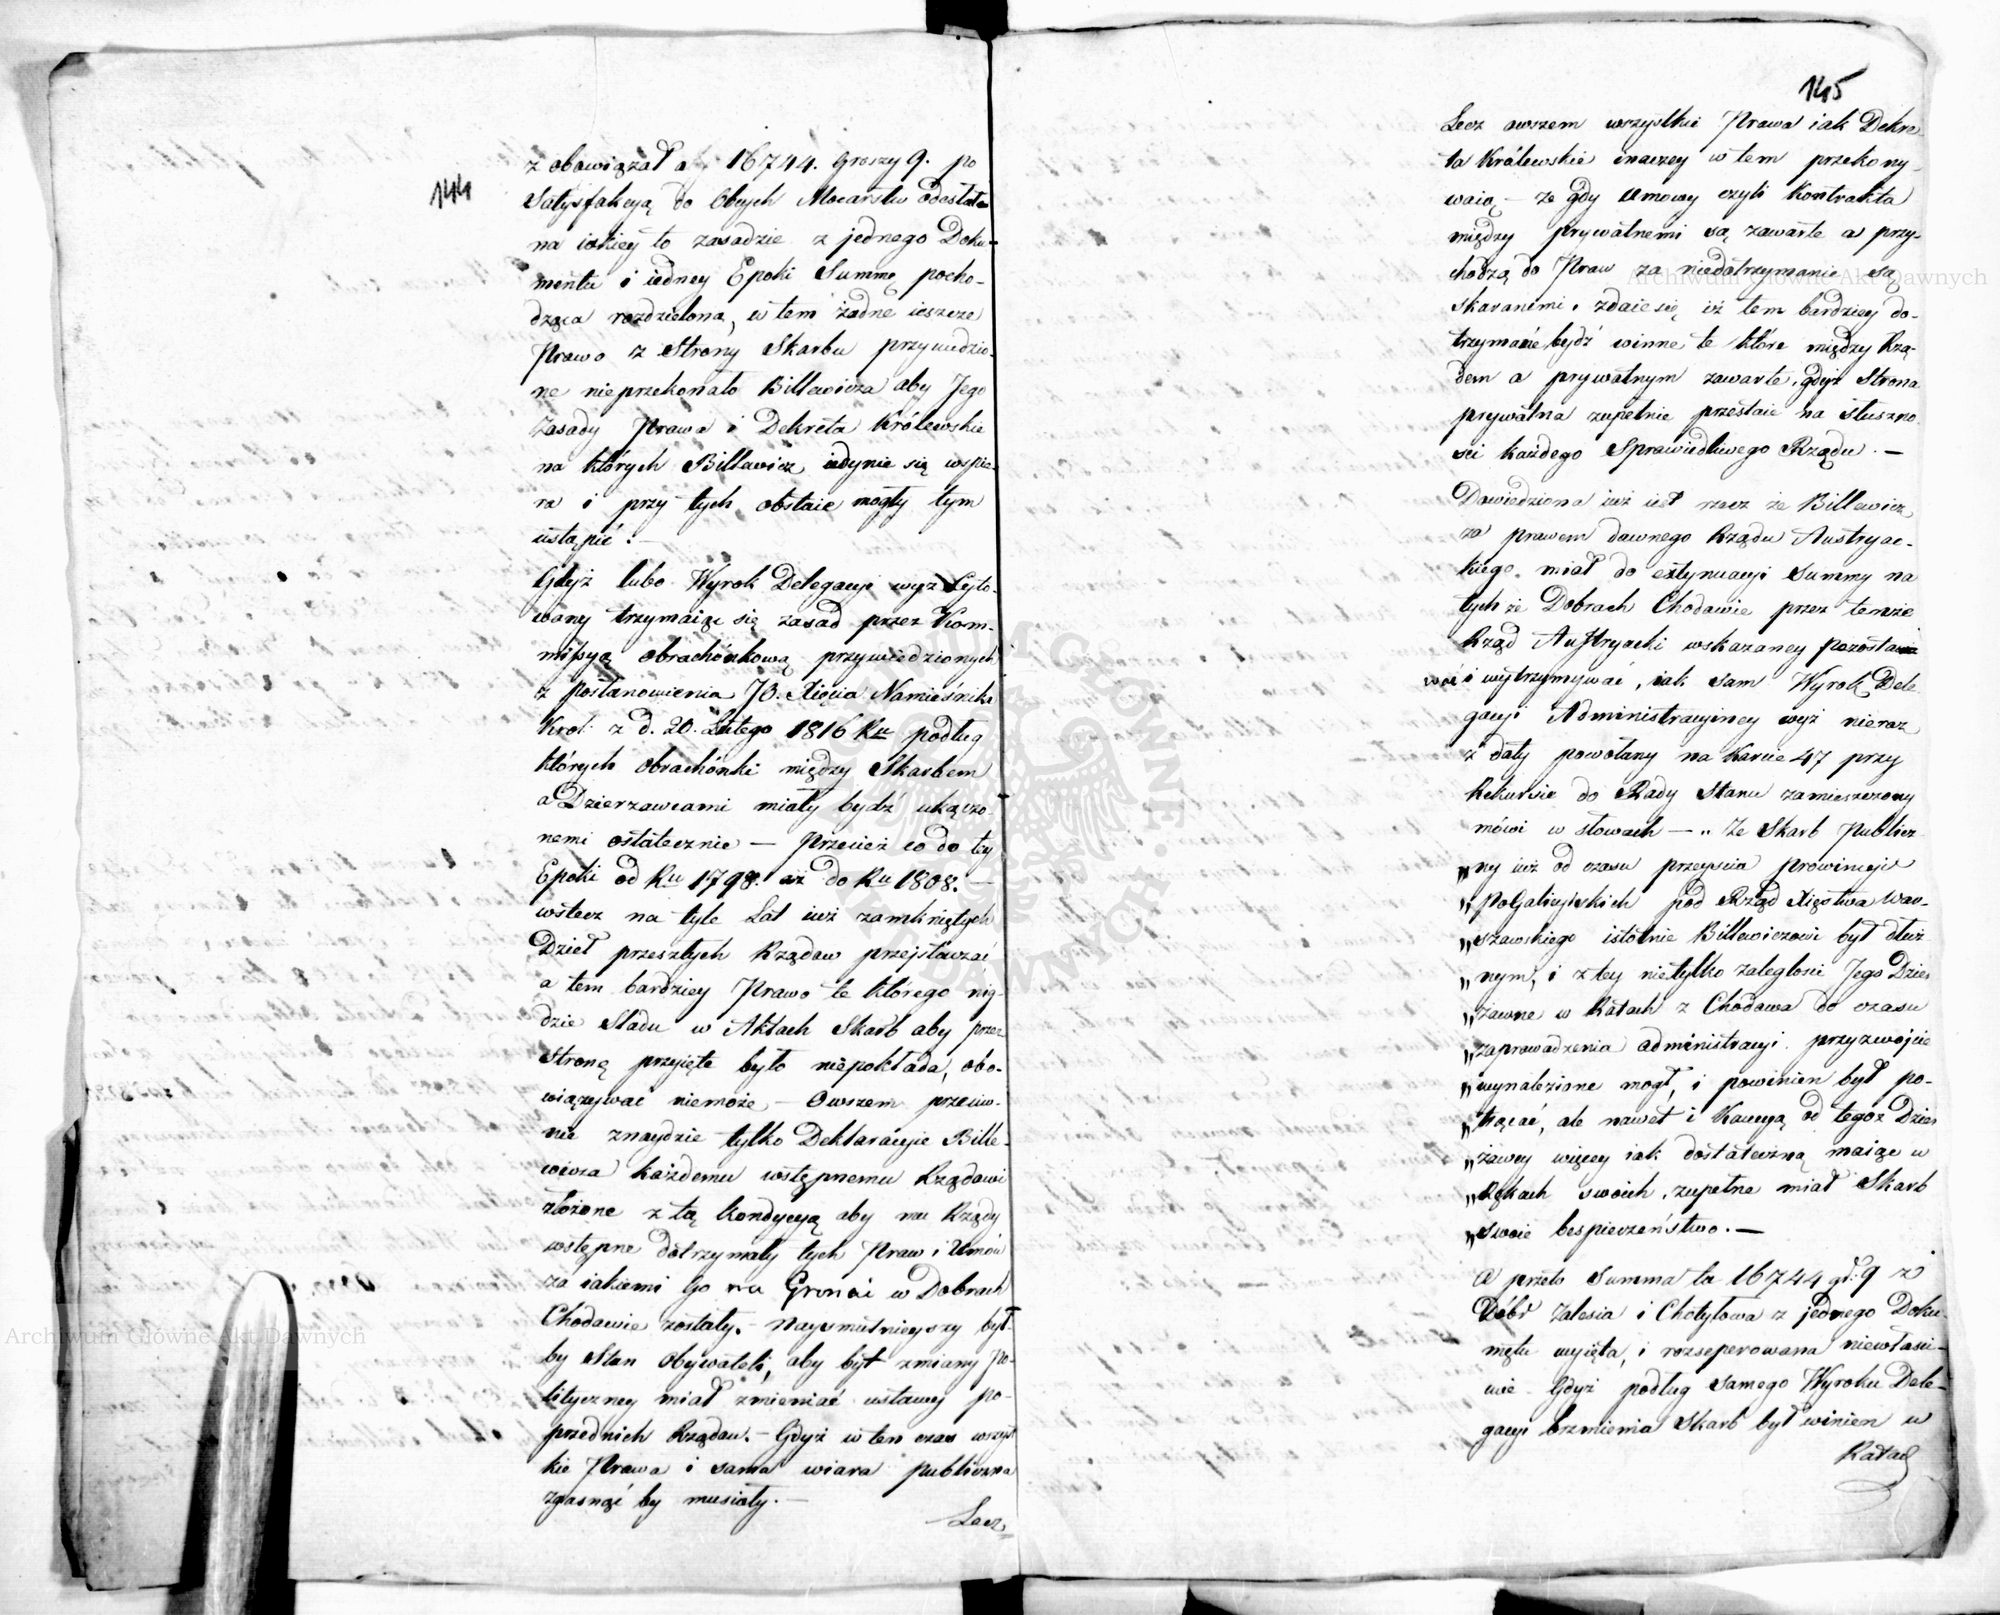 144
z obowiązał a 16744. Groszy 9. po
Satysfakcyą do Obcych Mocarstw odesłała
na iakiey to zasadzie z jednego Doku-
mentu i iedney Epoki Summę pocho-
dząca rozdzielona, w tem żadne ieszcze
Prawo z Strony Skarbu przywiedzio-
ne nieprzekonało Billewicza aby Jego
Zasady Prawa i Dekreta Królewskie
na których Billewicz iedynie się wspie-
ra i przy tych obstaie mogły tym
ustąpić. —
Gdyż lubo Wyrok Delegacyi wyż Cyto-
wany trzymaiąc się zasad przez Kom-
missyą obrachónkową przywiedzionych
z postanowienia JO. Xięcia Namiestnika
Krol: z d. 20. Lutego 1816 Ru podług
których Obrachónki między Skarbem
a Dzierzawcami miały bydź ukączo-
nemi ostatecznie — Przecież co do tey
Epoki od Ru 1798. aż do Ru 1808. —
wstecz na tyle Lat iuż zamkniętych
Dzieł przeszłych Rządow przejstaczać
a tem bardziey Prawo te którego nig-
dzie Sladu w Aktach Skarb aby przez
Stronę przyięte było niepokłada, obo-
wiązywać niemoże — Owszem przeciw-
nie znaydzie tylko Deklaracyie Bille-
wicza każdemu wstępnemu Rządowi
złożone z tą Kondycyą aby mu Rządy
wstępne dotrzymały tych Praw i Umów
za iakiemi Go na Gronci w Dobrach
Chodawie zostały. — Naysmutnieyszy był-
by Stan Obywateli, aby był zmiany Po-
lityczney miał zmieniać ustawy po-
przednich Rządow. — Gdyż w ten czas wszyst
kie Prawa i sama wiara publiczna
zgasnąć by musiały. —
Lecz
145
Lecz owszem wszystkie Prawa iak Dekre
ta Królewskie inaczey w tem przekony-
waią — ze gdy Umowy czyli Kontrakta
między prywatnemi są zawarte a przy-
chodzą do Praw za niedotrzymanie są
skaranemi. zdaie się iż tem bardziey do-
trzymane bydź winne te które między Rzą-
dem a prywatnym zawarte, gdyż Strona
prywatna zupełnie przestaie na słuszno-
ści każdego Sprawiedliwego Rządu. —
Dowiedziona iuż iest rzecz że Billewicz
za prawem dawnego Rządu Austryac-
kiego. miał do extynwacyi Summy na
tych że Dobrach Chodawie przez tenże
Rząd Austryacki wskazaney pozosta
wać i wytrzymywać, iak sam Wyrok Dele
gacyi Administracyiney wyż nieraz
z daty powołany na Karcie 47 przy
Rekursie do Rady Stanu zamieszczony
mówi w słowach — „ Ze Skarb Publicz
„ny iuż od czasu przeyscia prowincyi
„PoGalicyiskich pod Rząd Xięstwa War-
„szawskiego istotnie Billewiczowi był dłuż
„nym, i z tey nietylko zaległosci Jego Dzier
„żawne w Ratach z Chodawa do czasu
„zaprowadzenia administracyi. przyzwoicie
„wynalezione mogł, i powinien był po-
„trącać, ale nawet i Kaucyą od tegoż Dzier
„żawcy więcey iak dostateczną maiąc w
„Rękach swoich, zupełne miał Skarb
„swoie bespieczeństwo. —
A przeto Summa ta 16744 gr: 9 z
Dóbr Zalesia i Chotyłowa z jednego Doku-
mętu wyięta, i rozseperowana niewłasci-
wie — Gdyż podług samego Wyroku Dele-
gacyi brzmienia Skarb był winien w
Ratach
Archiwum Główne Akt Dawnych
Archiwum Główne Akt Dawnych